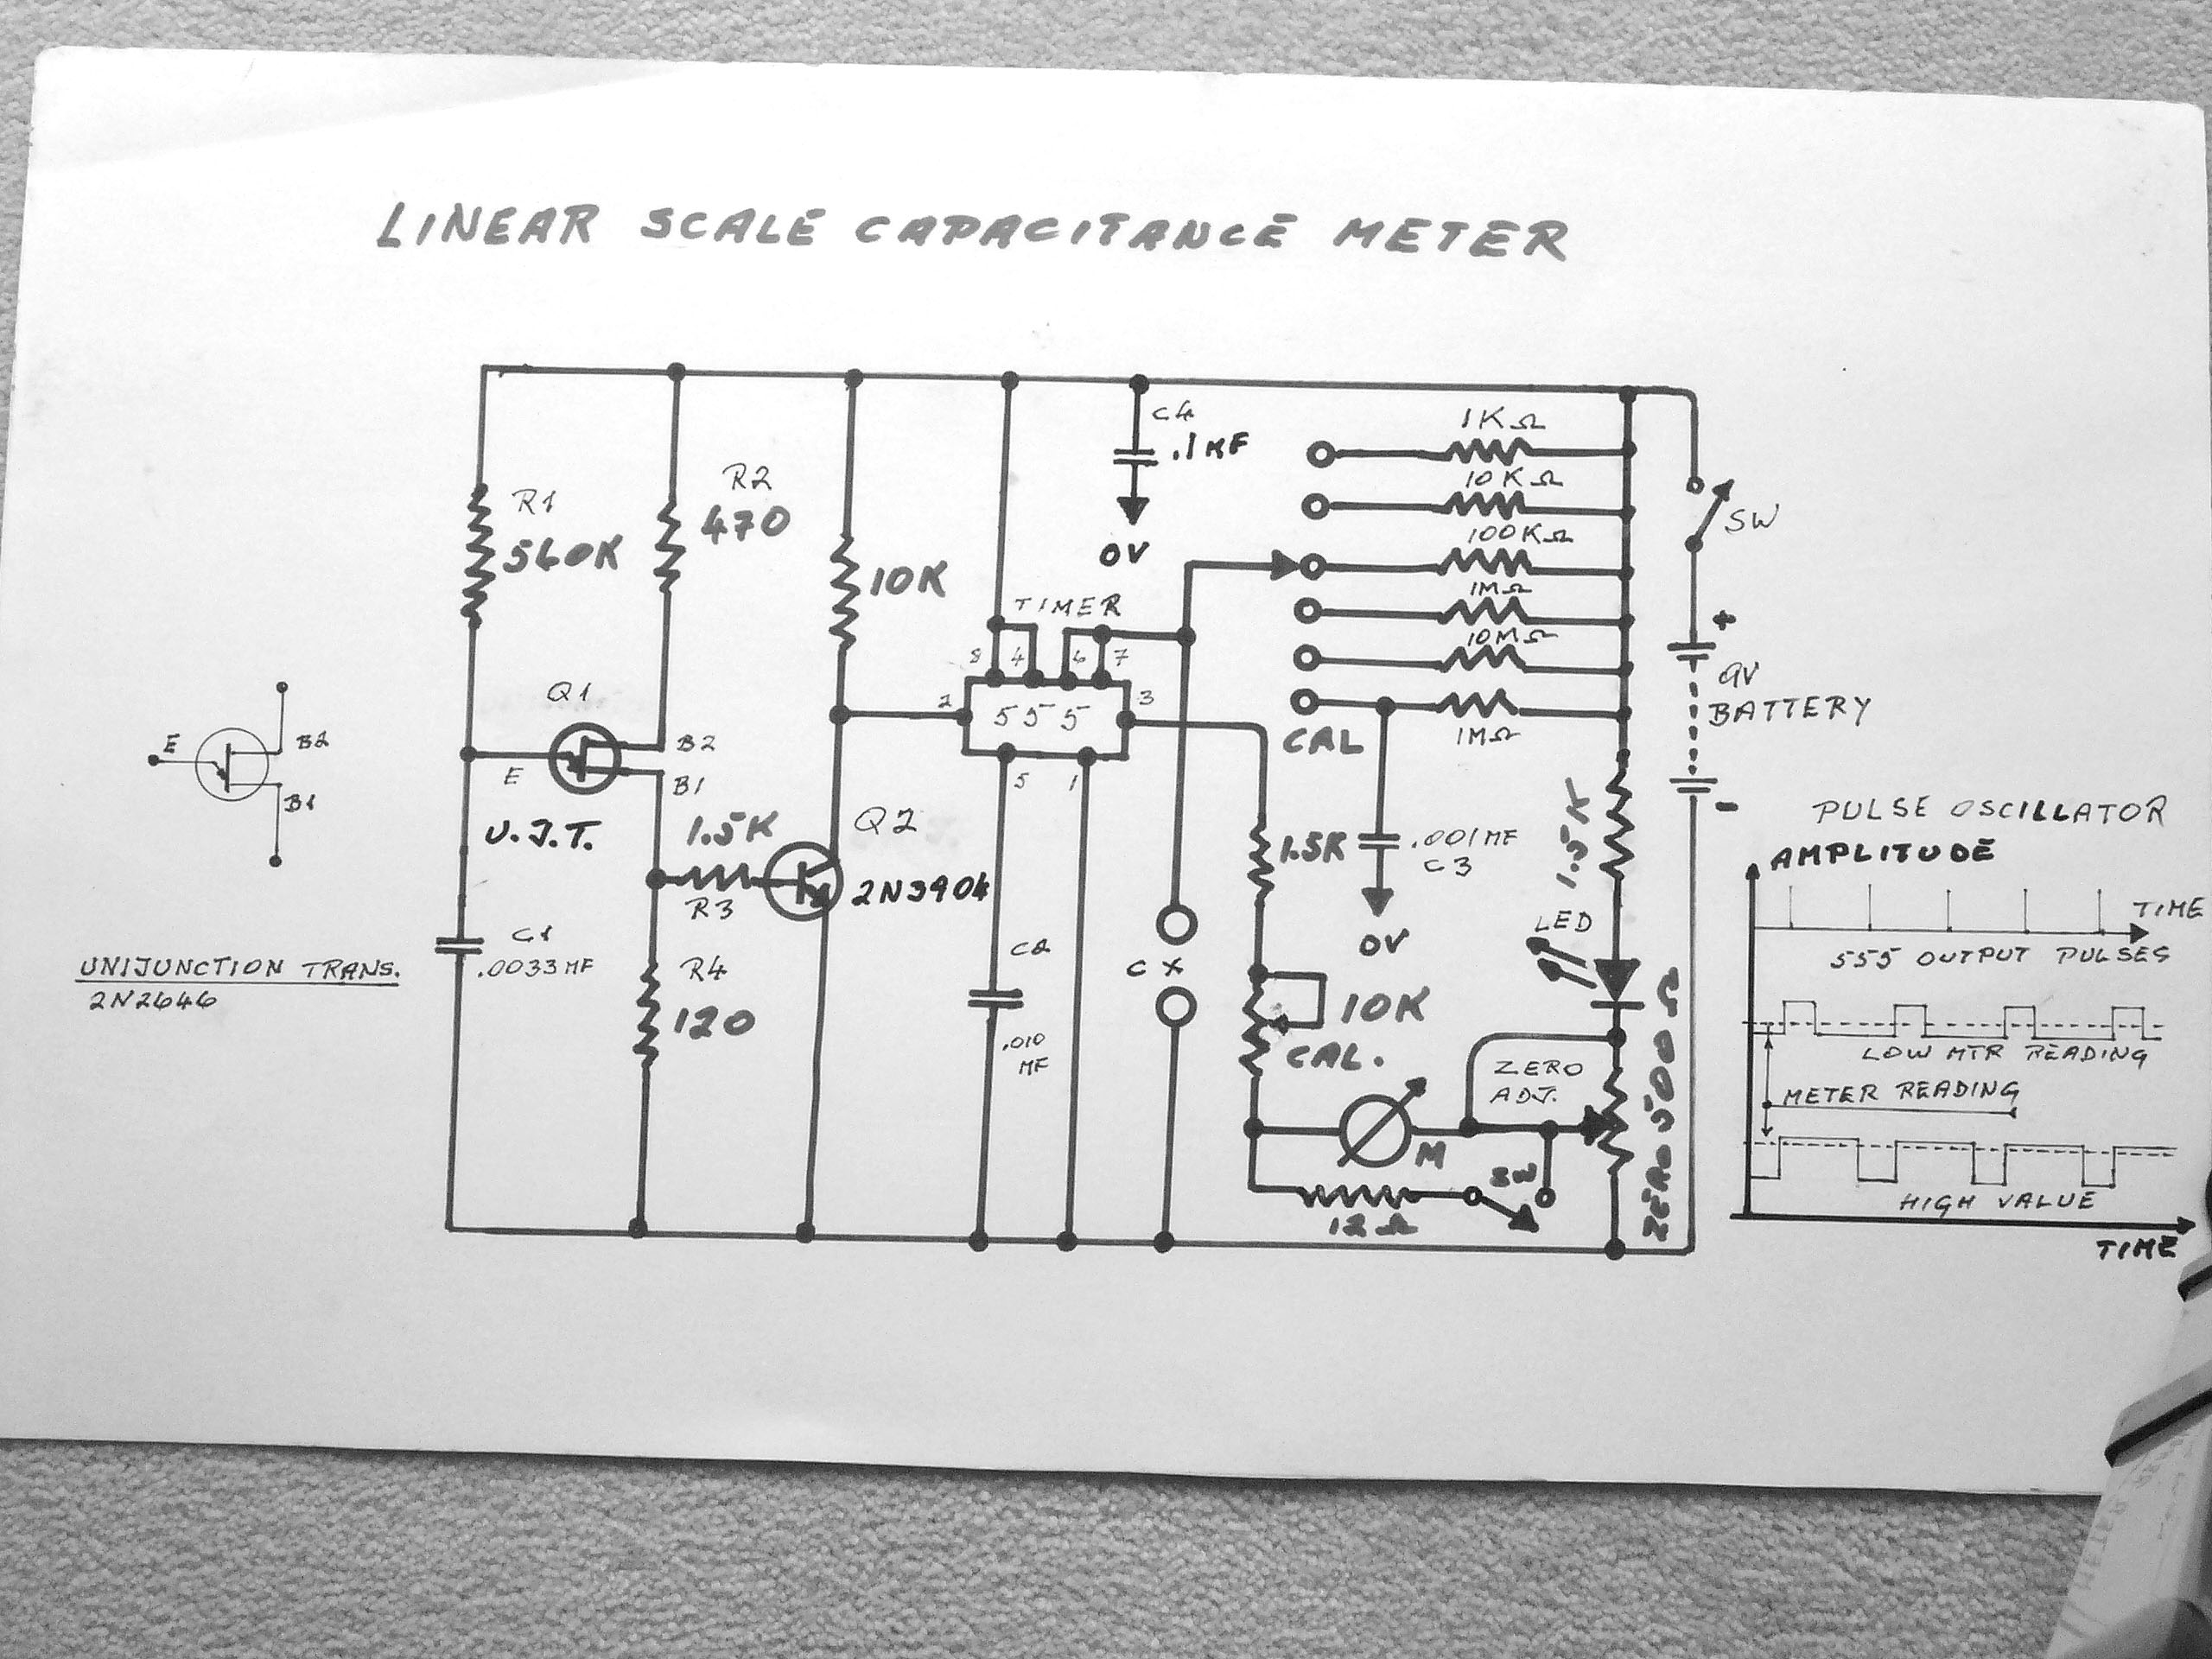 LINEAR SCALE CAPACITANCE METER
C4
.1MF
0V
1KΩ
10KΩ
100KΩ
1MΩ
10MΩ
1MΩ
CAL
SW
+
9V
BATTERY
-
R1
560K
R2
470
10K
TIMER
8 4 6 7
2
555
3
5 1
Q1
E
B2
B1
U.J.T.
E
B2
B1
1.5K
R3
Q2
2N3904
UNIJUNCTION TRANS.
2N2646
C1
.0033MF
R4
120
C2
.010
MF
CX
1.5K
.001MF
C3
0V
10K
CAL.
1.5K
LED
ZERO
ADJ.
ZERO 500Ω
M
SW
12Ω
PULSE OSCILLATOR
AMPLITUDE
TIME
555 OUTPUT PULSES
LOW MTR READING
METER READING
HIGH VALUE
TIME